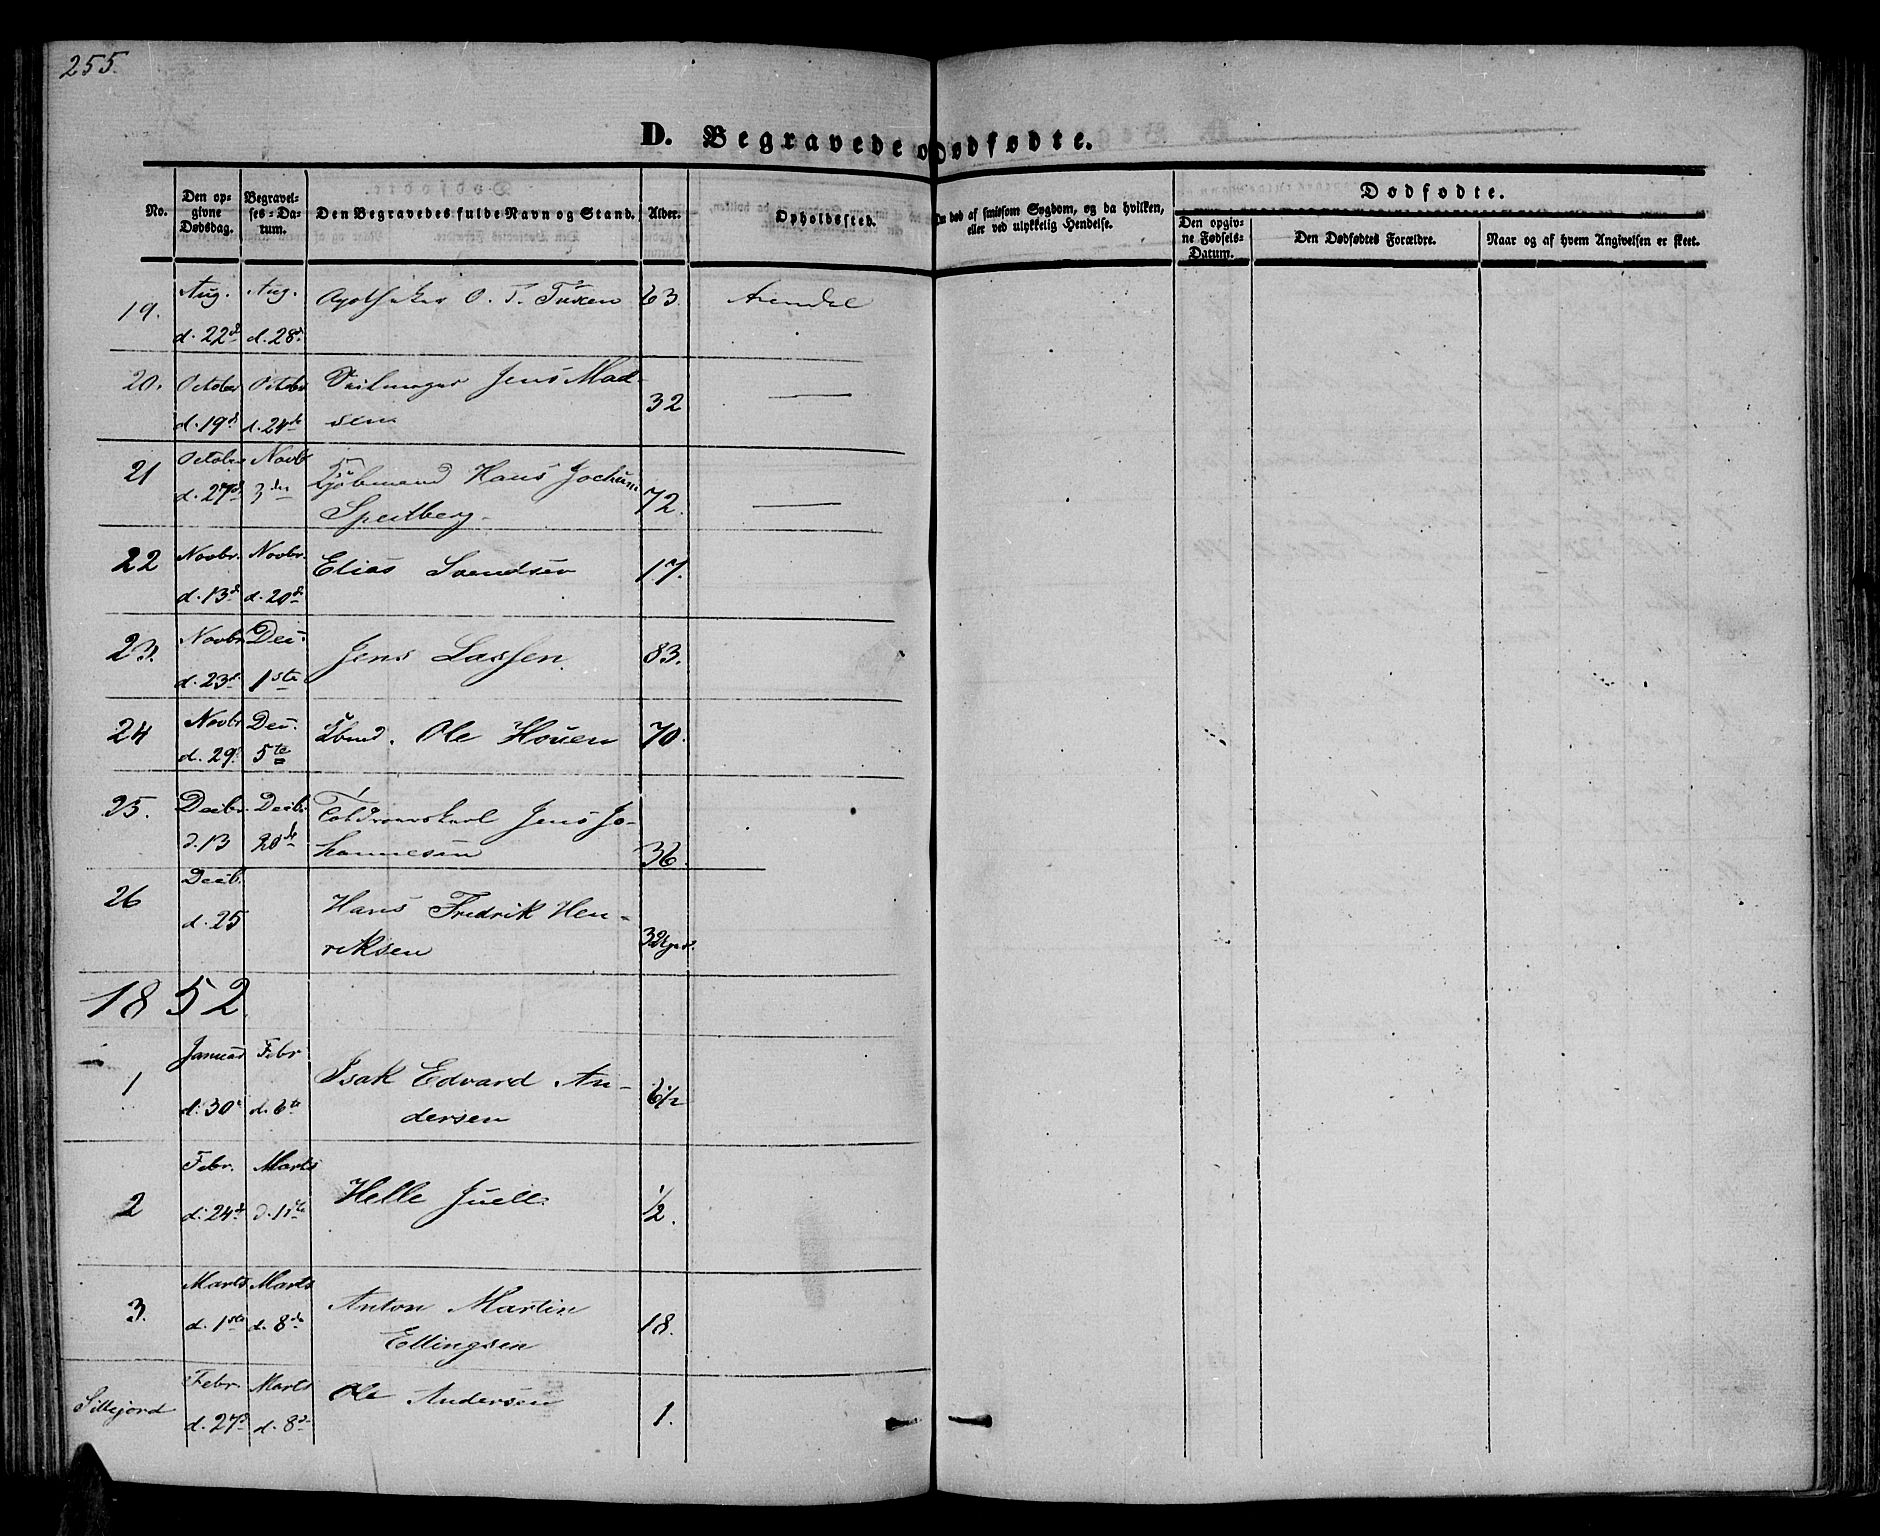 255.
D. Begravede o Dødfødte.
No.
Den op-
givne
Dødsdag.
Begravel-
ses-Da-
tum.
Den Begravedes fulde Navn og Stand.
Alder.
Opholdssted.
død af smitsom Sygdom, og da hvilken,
eller ved ulykkelig Hendelse.
Dødfødte.
Den opgiv-
ne Fødsels-
Datum.
Den Dødfødtes Forældre.
Naar og af hvem Angivelsen er skeet.
19. Aug. d. 22d Aug. d. 28d Apotheker O. T. Tuxen 63. Arendal
20. October d. 19d October d. 24de Seilmager Jens Mad-
sen 32 —
21 October d. 27d Novb 3die Kjøbmand Hans Jochum
72. —
22 Novbr. d. 13d Novbr. d. 20d Elias Svendsen 17.
23. Novbr d. 23d Dec. 1ste Jens Lassen. 83.
24 Novbr d. 29d Dec. 5te Ole Houen 70.
25. Decbr. d. 13 Decbr. 20de Jens Jo-
hannesen 36.
26 Decb. d. 25 Hans Fredrik Hen-
riksen
1852
1 Januar d. 30d Febr d. 6te Isak Edvard An-
dersen 6 1/2
2 Febr. d. 24d Marts d. 11te Helle Juell. 1/2.
3. Marts d. 1ste Marts d. 8de Anton Martin
Ellingsen 18.
Sillejord Febr. d. 27d Marts d. 8d Ole Andersen 1.